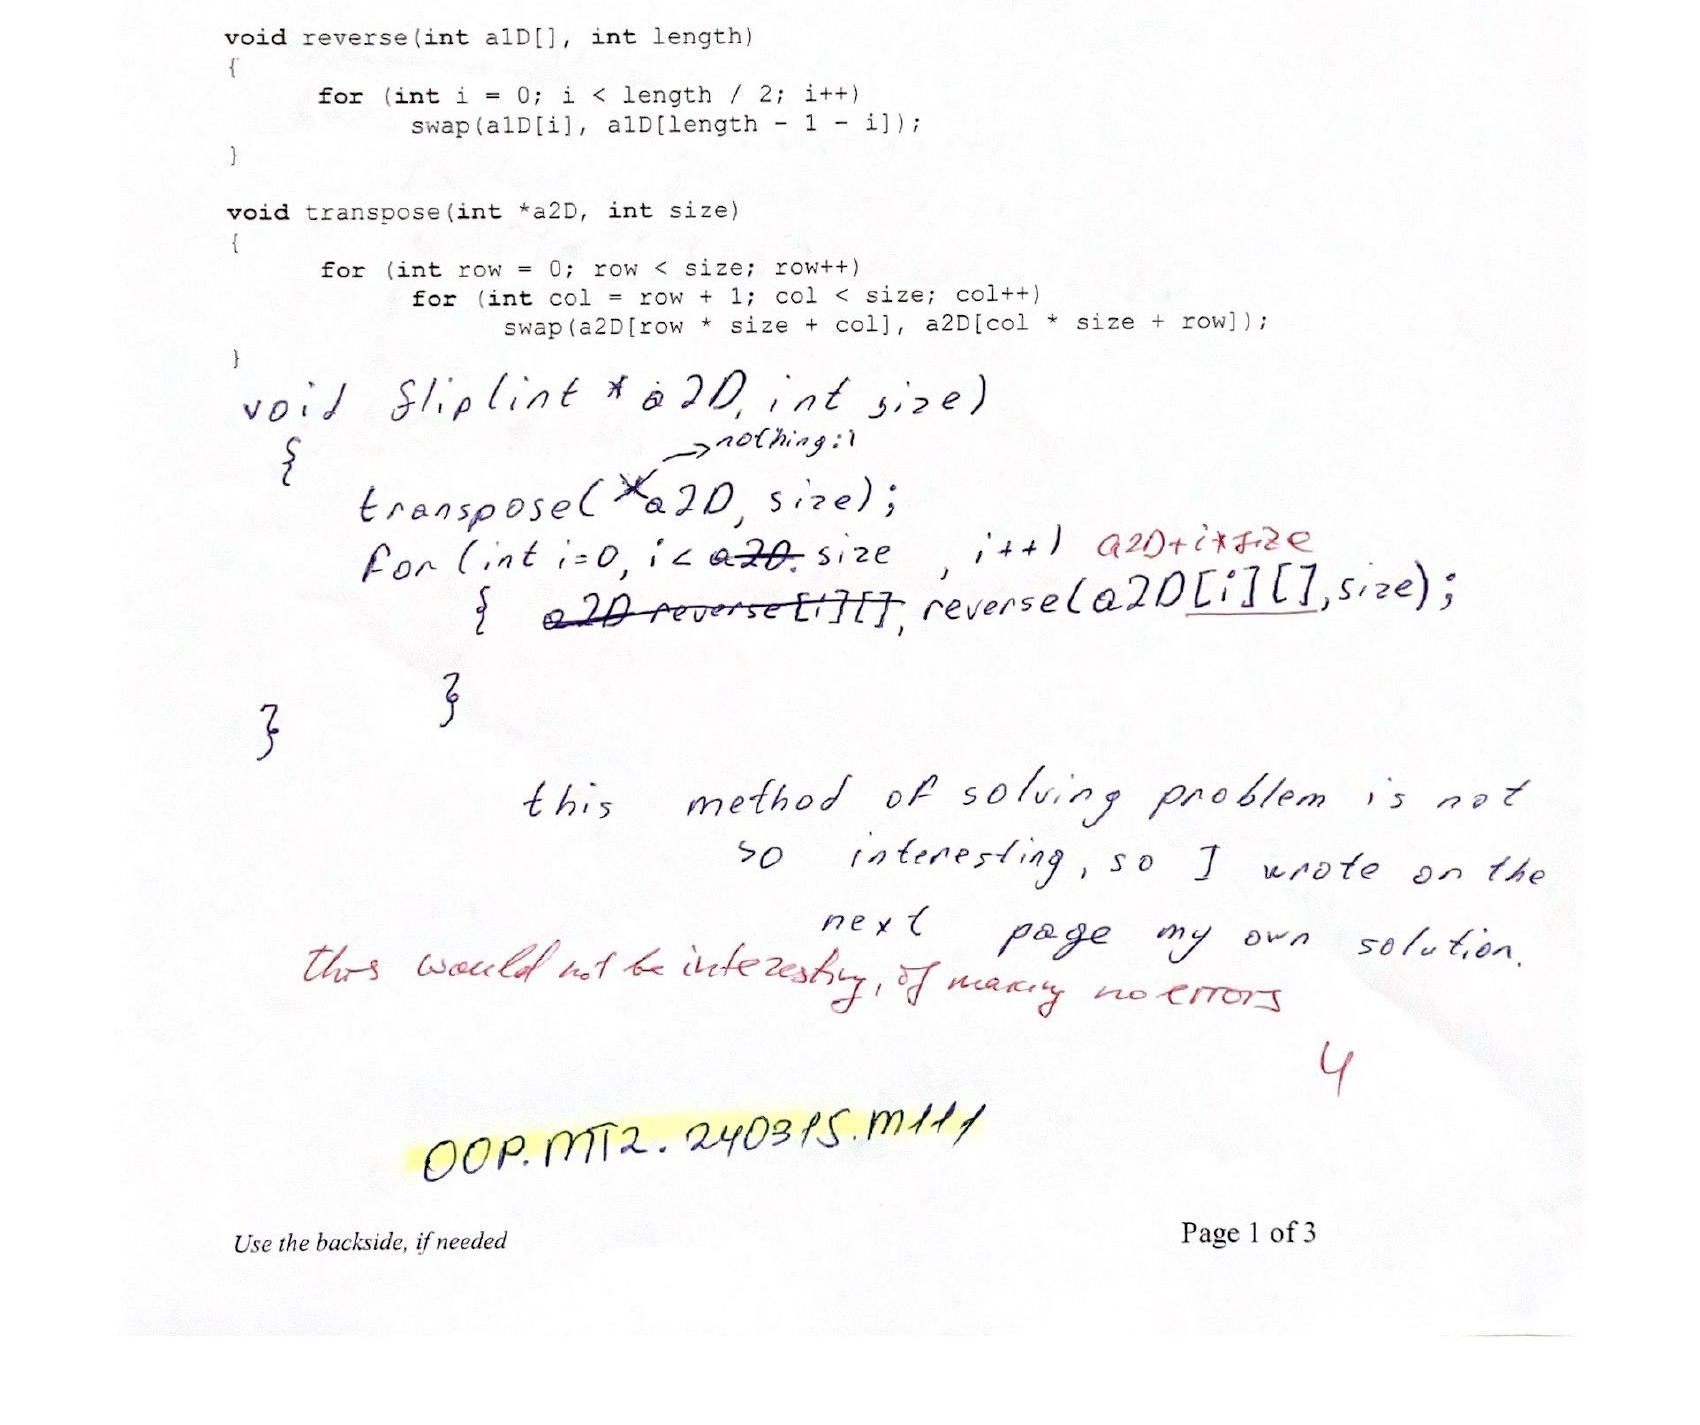 void reverse(int a1D[], int length)
{
for (int i = 0; i < length / 2; i++)
swap(a1D[i], a1D[length - 1 - i]);
}
void transpose(int *a2D, int size)
{
for (int row = 0; row < size; row++)
for (int col = row + 1; col < size; col++)
swap(a2D[row * size + col], a2D[col * size + row]);
}
void flip(int * a2D, int size)
{ → nothing :)
transpose(*a2D, size);
for (int i=0, i < a2D. size , i++) a2D+i*size
{ a2D reverse[i][], reverse(a2D[i][], size);
}
}
this method of solving problem is not
so interesting, so I wrote on the
next page my own solution.
this would not be interesting, if making no errors
4
OOP.MT2.240315.M111
Use the backside, if needed Page 1 of 3